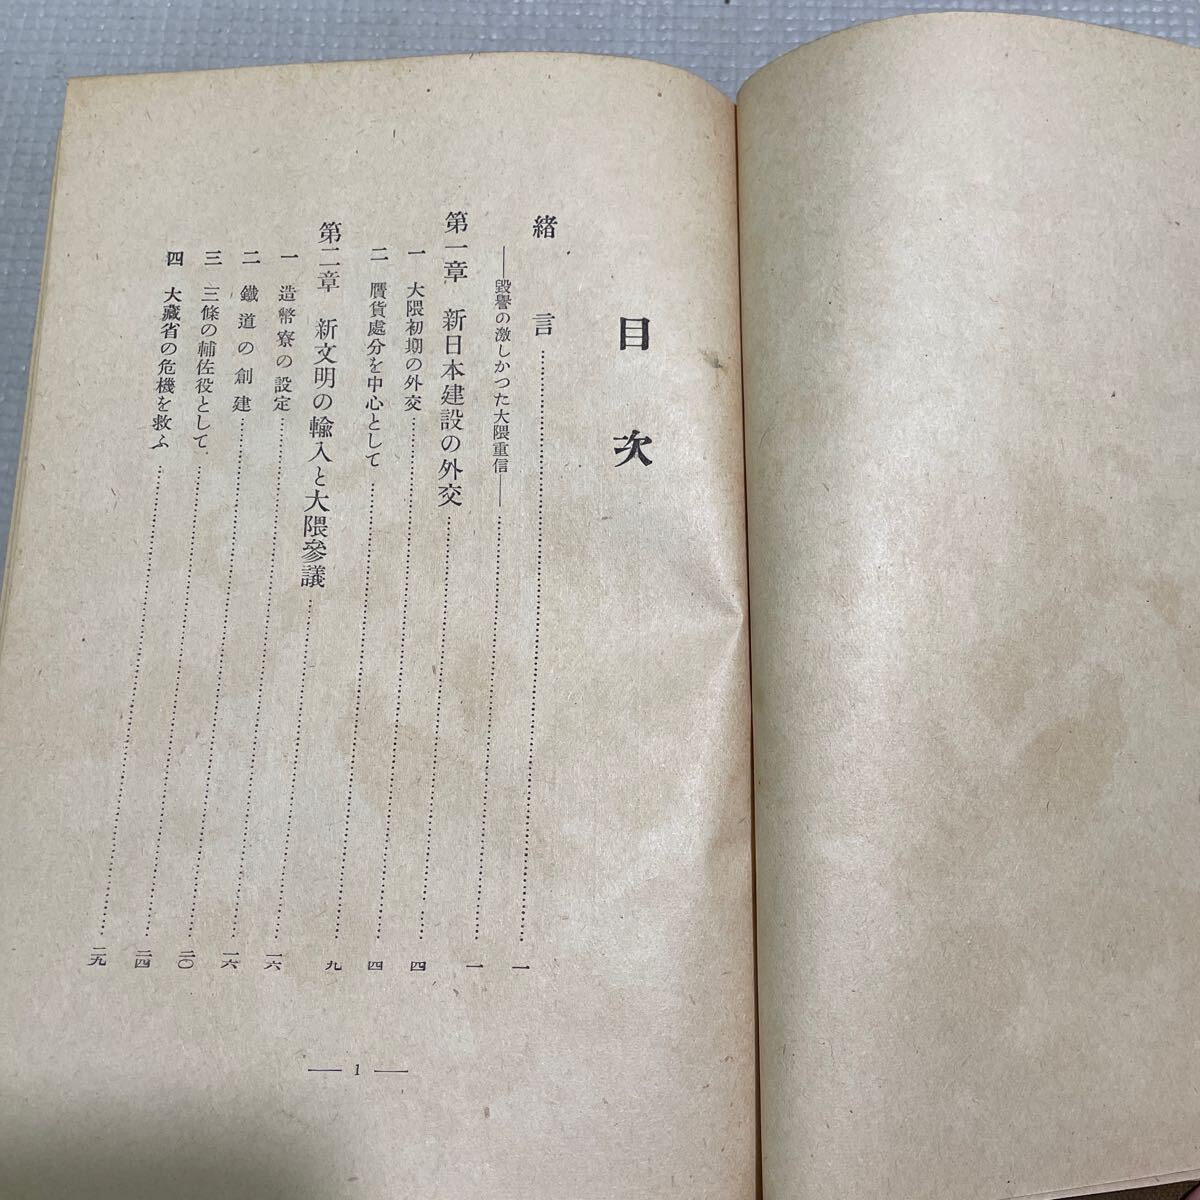 目次
緒言……一
―毀譽の激しかつた大隈重信―……一
第一章 新日本建設の外交……四
一 大隈初期の外交……四
二 贋貨處分を中心として……九
第二章 新文明の輸入と大隈參議……一六
一 造幣寮の設定……一六
二 鐵道の創建……二〇
三 三條の輔佐役として……二四
四 大藏省の危機を救ふ……二九
― 1 ―